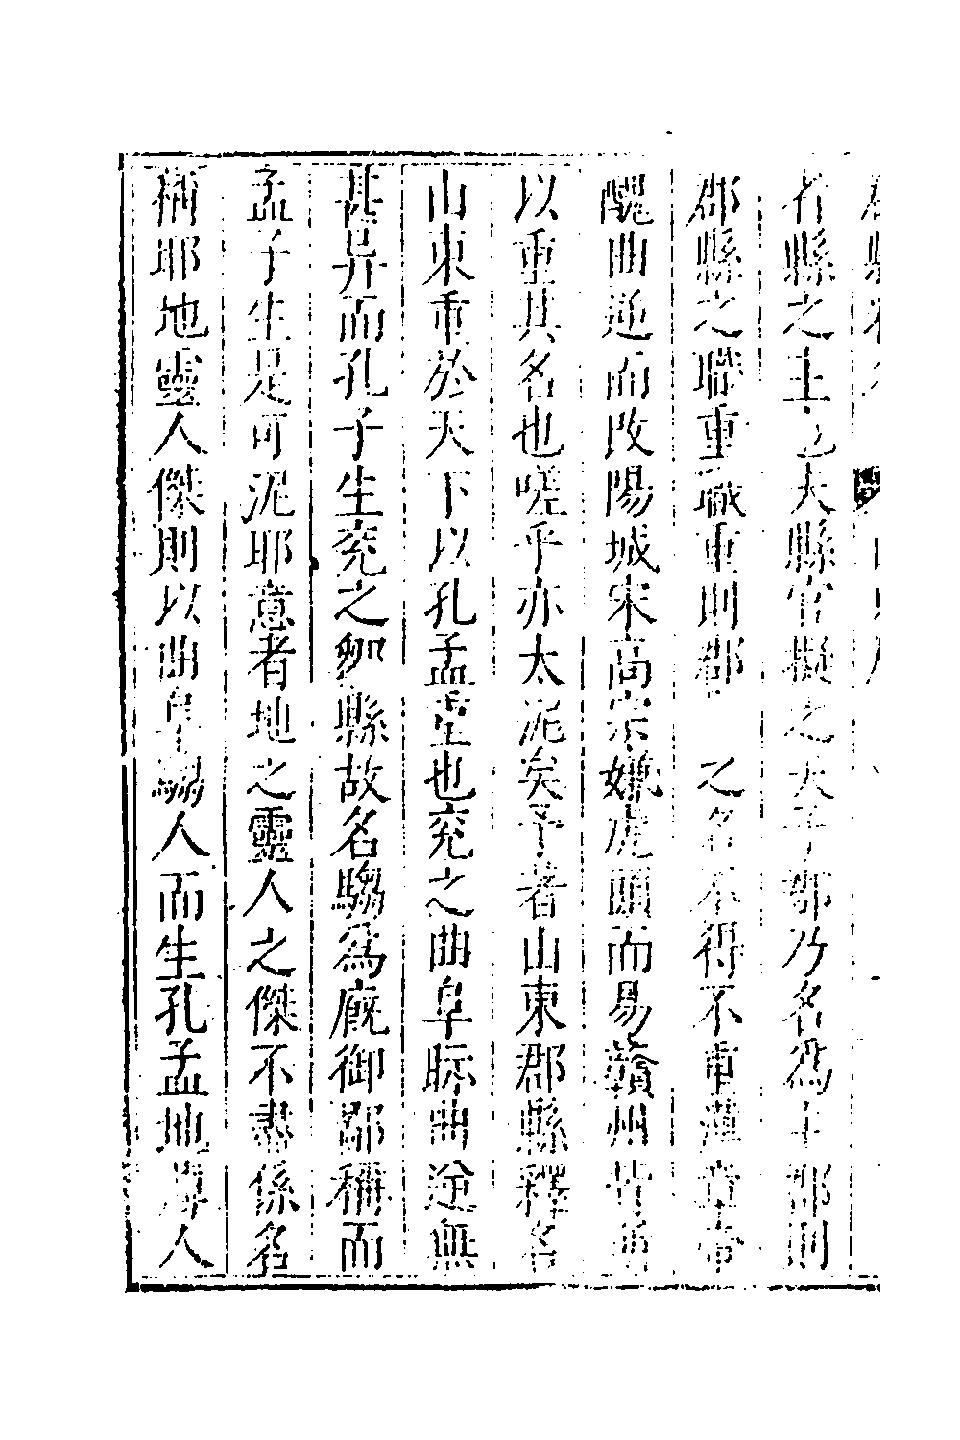 者縣之主也大縣官擬之天子郡乃名爲主郡則
郡縣之職重職重則郡之名不得不重漢章帝
醜曲逆而改陽城宋高宗嫌虎頭而易贛州皆所
以重其名也嗟乎亦太泥矣予著山東郡縣釋名
山東重於天下以孔孟重也兖之曲阜眎曲逆無
甚异而孔子生兖之鄒縣故名騶爲廐御鄙稱而
孟子生是可泥耶意者地之靈人之傑不盡係名
稱耶地靈人傑則以曲阜騶人而生孔孟地與人